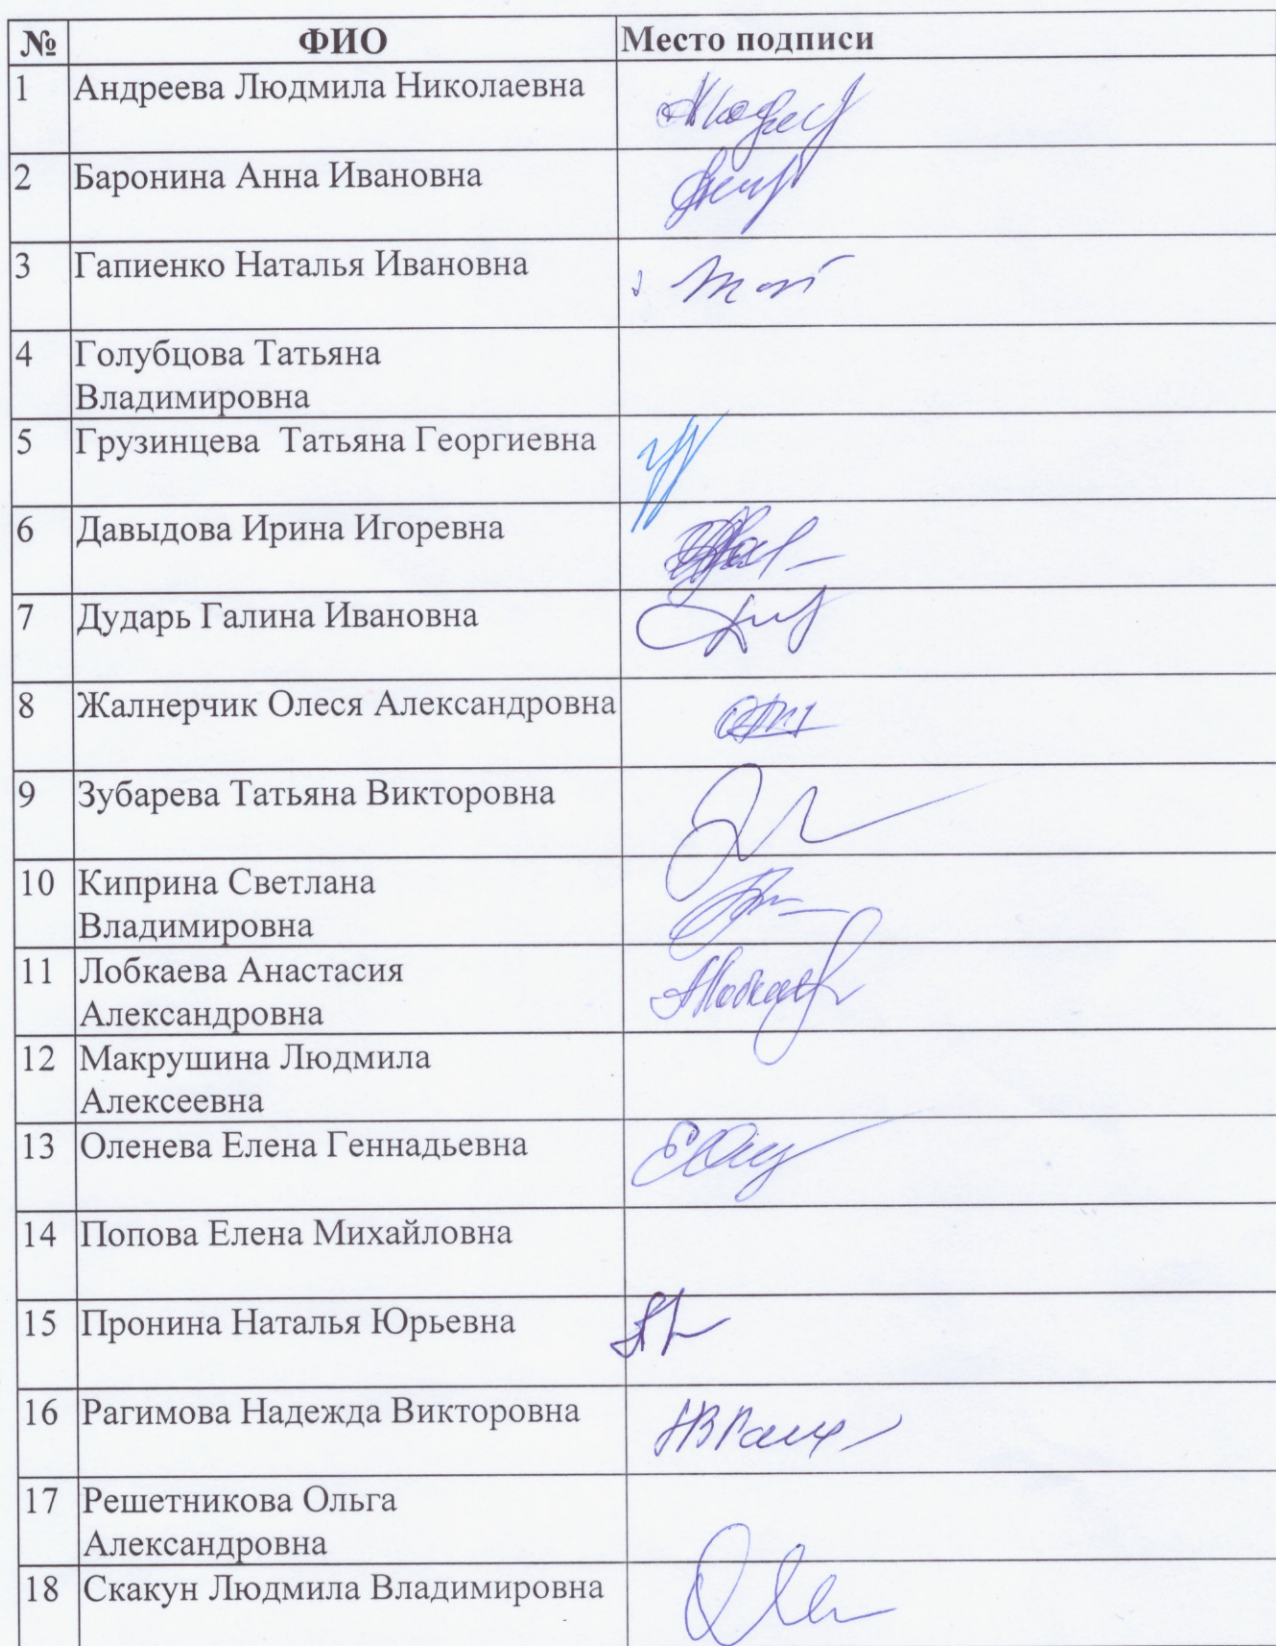 № ФИО Место подписи
1 Андреева Людмила Николаевна
2 Баронина Анна Ивановна
3 Гапиенко Наталья Ивановна
4 Голубцова Татьяна
Владимировна
5 Грузинцева Татьяна Георгиевна
6 Давыдова Ирина Игоревна
7 Дударь Галина Ивановна
8 Жалнерчик Олеся Александровна
9 Зубарева Татьяна Викторовна
10 Киприна Светлана
Владимировна
11 Лобкаева Анастасия
Александровна
12 Макрушина Людмила
Алексеевна
13 Оленева Елена Геннадьевна
14 Попова Елена Михайловна
15 Пронина Наталья Юрьевна
16 Рагимова Надежда Викторовна
17 Решетникова Ольга
Александровна
18 Скакун Людмила Владимировна